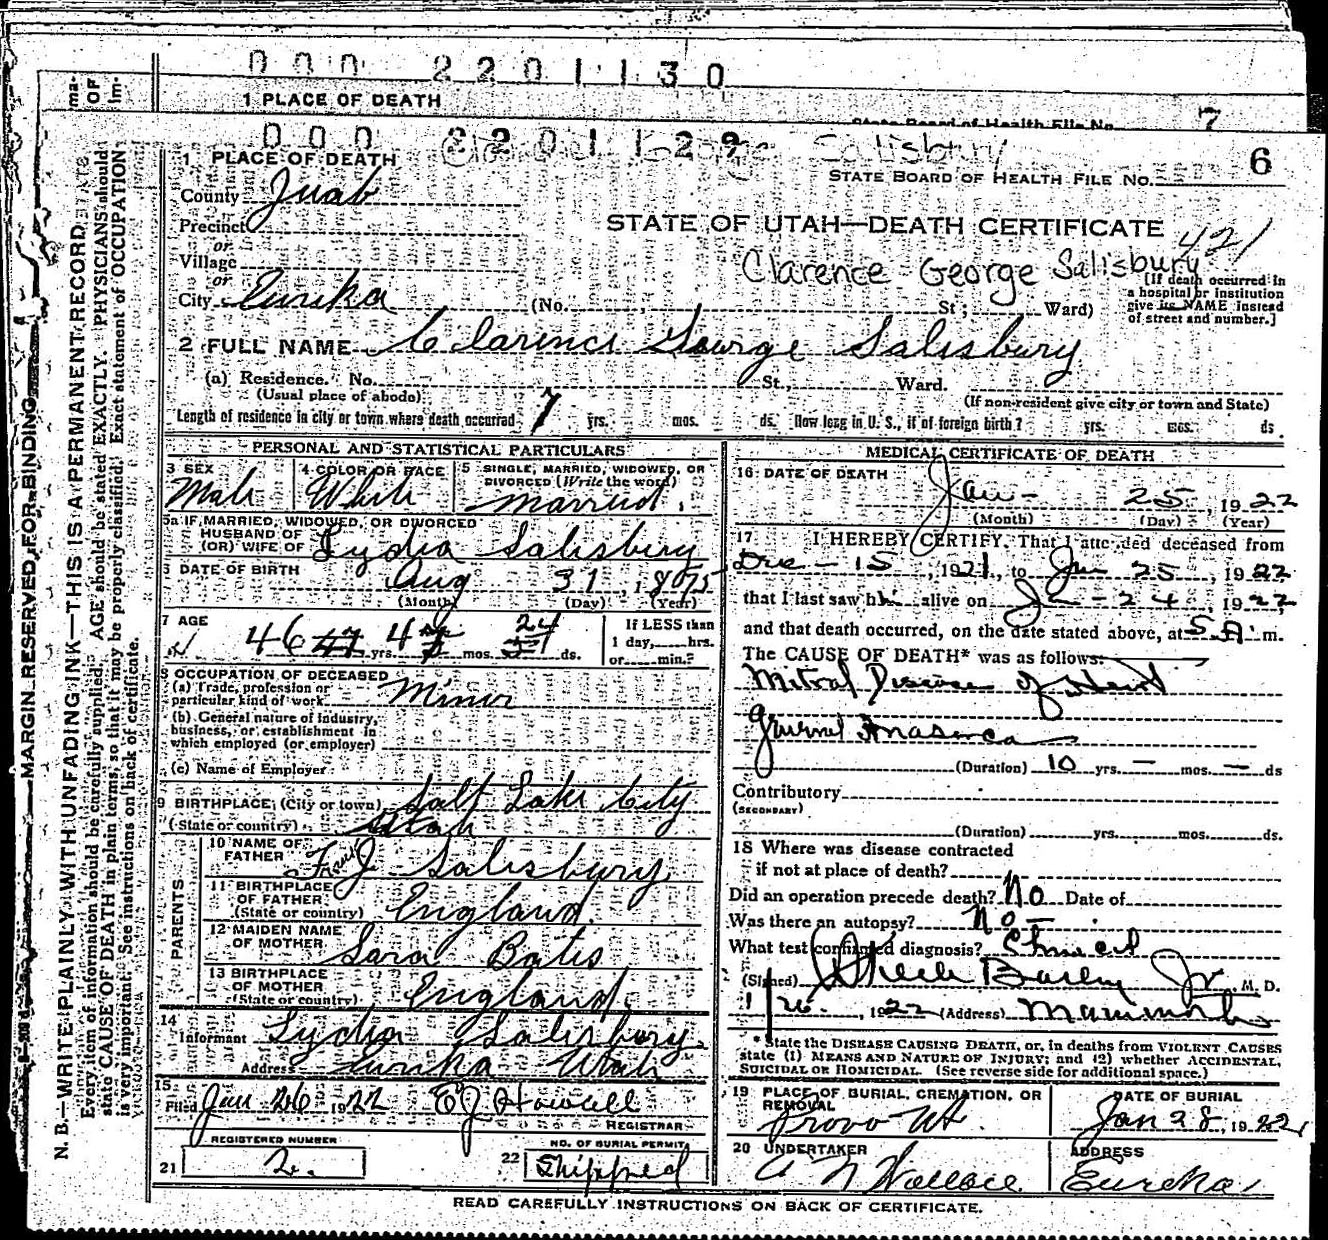 0 0 0 2 2 0 1 1 3 0
1 PLACE OF DEATH
7
0 0 0 2 2 0 1 1 2 9
Salisbury
6
1 PLACE OF DEATH
STATE BOARD OF HEALTH FILE NO.
County Juab
STATE OF UTAH—DEATH CERTIFICATE
421
Precinct
or
Village
or
Clarence George Salisbury
City Eureka (No. St; Ward)
[If death occurred in
a hospital or institution
give its NAME instead
of street and number.]
2 FULL NAME Clarence George Salisbury
(a) Residence. No. St., Ward.
(Usual place of abode) (If non-resident give city or town and State)
Length of residence in city or town where death occurred 7 yrs. mos. ds. How long in U. S., if of foreign birth? yrs. mos. ds
PERSONAL AND STATISTICAL PARTICULARS
3 SEX Male
4 COLOR OR RACE White
5 SINGLE, MARRIED, WIDOWED, OR
DIVORCED (Write the word)
married.
5a IF MARRIED, WIDOWED, OR DIVORCED
HUSBAND OF
(OR) WIFE OF Lydia Salisbury
6 DATE OF BIRTH Aug 31, 1875
(Month) (Day) (Year)
7 AGE 46 47 yrs. 4 mos. 24 ds.
If LESS than
1 day, hrs.
or min.?
8 OCCUPATION OF DECEASED
(a) Trade, profession or
particular kind of work Miner
(b) General nature of industry,
business, or establishment in
which employed (or employer)
(c) Name of Employer
9 BIRTHPLACE, (City or town) Salt Lake City
(State or country) Utah
PARENTS
10 NAME OF
FATHER J Salisbury
11 BIRTHPLACE
OF FATHER
(State or country) England.
12 MAIDEN NAME
OF MOTHER Sara Bates
13 BIRTHPLACE
OF MOTHER
(State or country) England.
14
Informant Lydia Salisbury
Address Eureka Utah
15
Filed Jan 26 1922 E J Howell
REGISTRAR
REGISTERED NUMBER
21 2.
NO. OF BURIAL PERMIT
22 Shipped
MEDICAL CERTIFICATE OF DEATH
16 DATE OF DEATH
Jan - 25, 1922
(Month) (Day) (Year)
17 I HEREBY CERTIFY, That I attended deceased from
Dec - 15, 1921, to Jan 25, 1922
that I last saw him alive on Ja - 24, 1922,
and that death occurred, on the date stated above, at 5 A m.
The CAUSE OF DEATH* was as follows:
Mitral Disease of Heart
General Anasarca
(Duration) 10 yrs. — mos. — ds
Contributory
(SECONDARY)
(Duration) yrs. mos. ds.
18 Where was disease contracted
if not at place of death?
Did an operation precede death? No Date of
Was there an autopsy? No —
What test confirmed diagnosis? Clinical
(Signed) Steele Bailey Jr. M. D.
1/26, 1922 (Address) Mammoth
* State the DISEASE CAUSING DEATH, or, in deaths from VIOLENT CAUSES
state (1) MEANS AND NATURE OF INJURY; and (2) whether ACCIDENTAL,
SUICIDAL OR HOMICIDAL. (See reverse side for additional space.)
19 PLACE OF BURIAL, CREMATION, OR
REMOVAL
Provo Ut.
DATE OF BURIAL
Jan 28, 1922
20 UNDERTAKER
A N Wallace
ADDRESS
Eureka
READ CAREFULLY INSTRUCTIONS ON BACK OF CERTIFICATE.
MARGIN RESERVED FOR BINDING
N. B.—WRITE PLAINLY WITH UNFADING INK—THIS IS A PERMANENT RECORD.
Every item of information should be carefully supplied. AGE should be stated EXACTLY. PHYSICIANS should
state CAUSE OF DEATH in plain terms, so that it may be properly classified. Exact statement of OCCUPATION
is very important. See instructions on back of certificate.